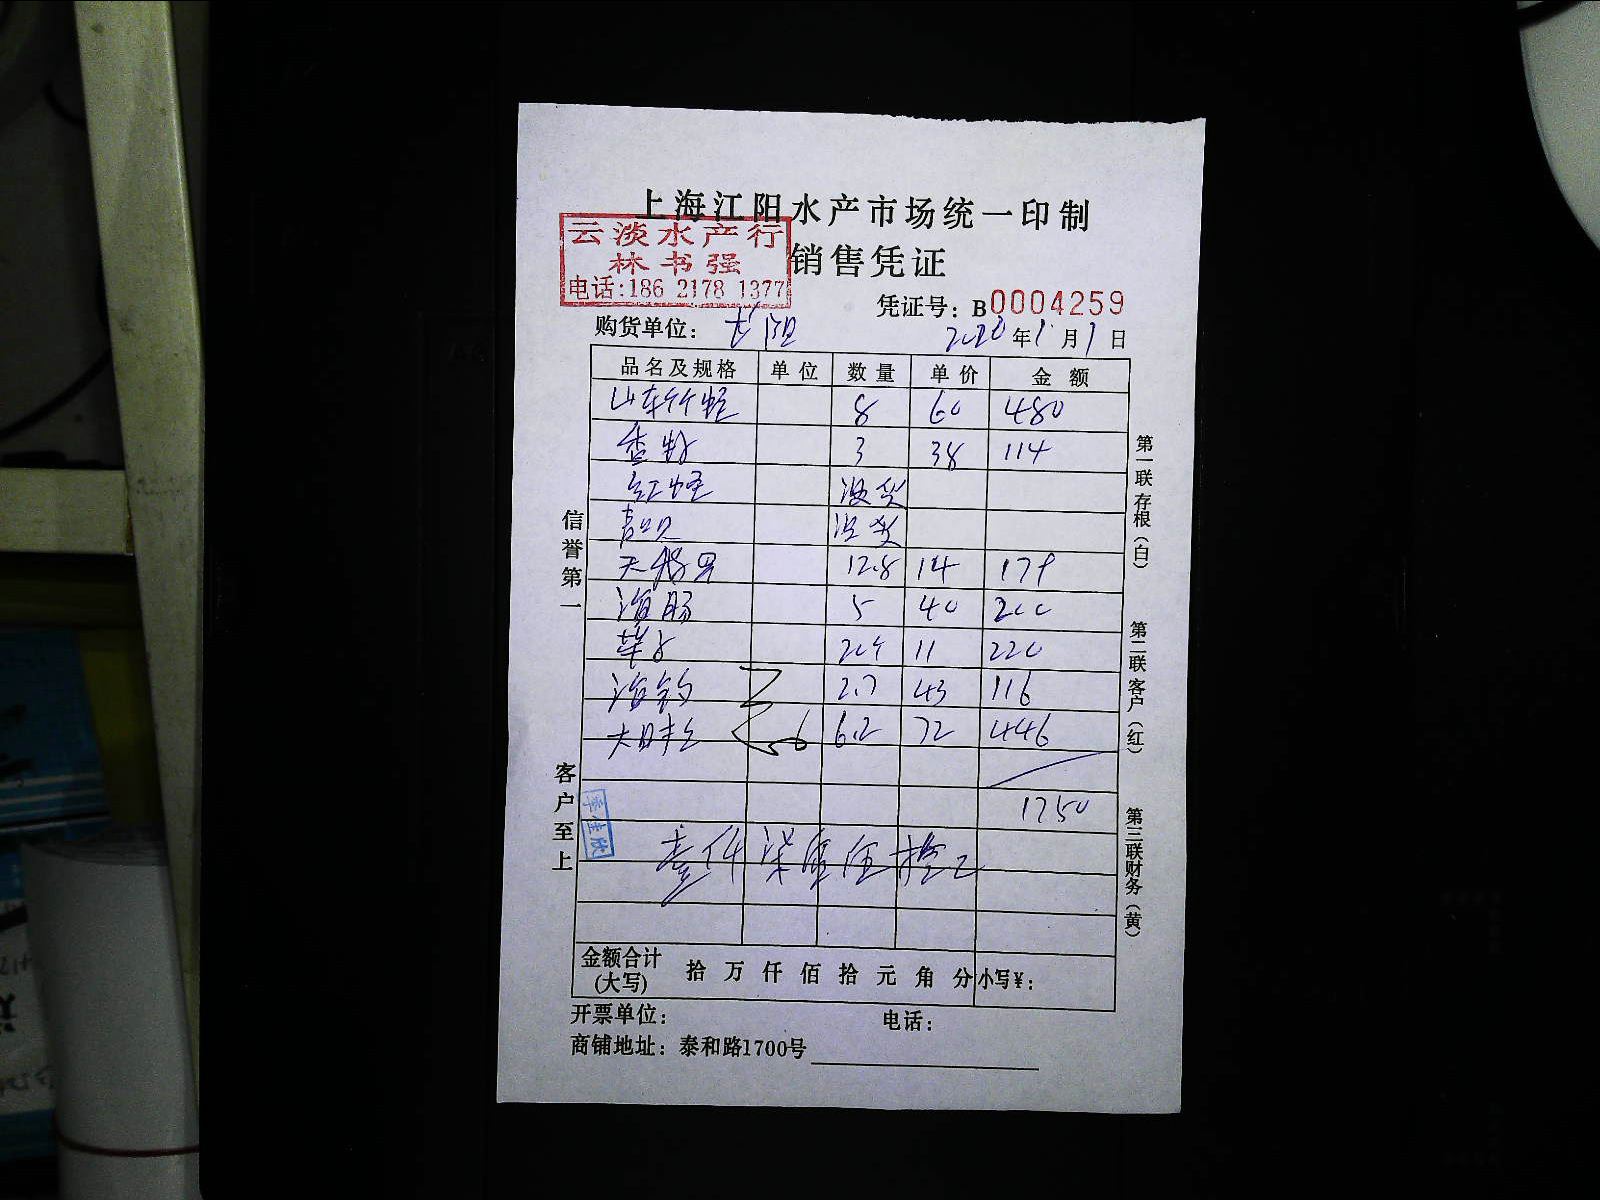 上海江阳水产市场统一印制
云淡水产行
林书强
电话:186 2178 1377
销售凭证
凭证号: B0004259
购货单位:
2020年1月1日
品名及规格 单位 数量 单价 金额
山东竹蛏 8 60 480
3 38 114
红蛏 没货
青口贝 没货
12.8 14 179
海肠 5 40 200
11 220
2.7 43 116
6 6.2 72 446
1750
壹仟柒佰伍拾元
李佳欣
金额合计(大写) 拾 万 仟 佰 拾 元 角 分 小写¥:
开票单位: 电话:
商铺地址: 泰和路1700号
信誉第一
客户至上
第一联存根(白)
第二联客户(红)
第三联财务(黄)